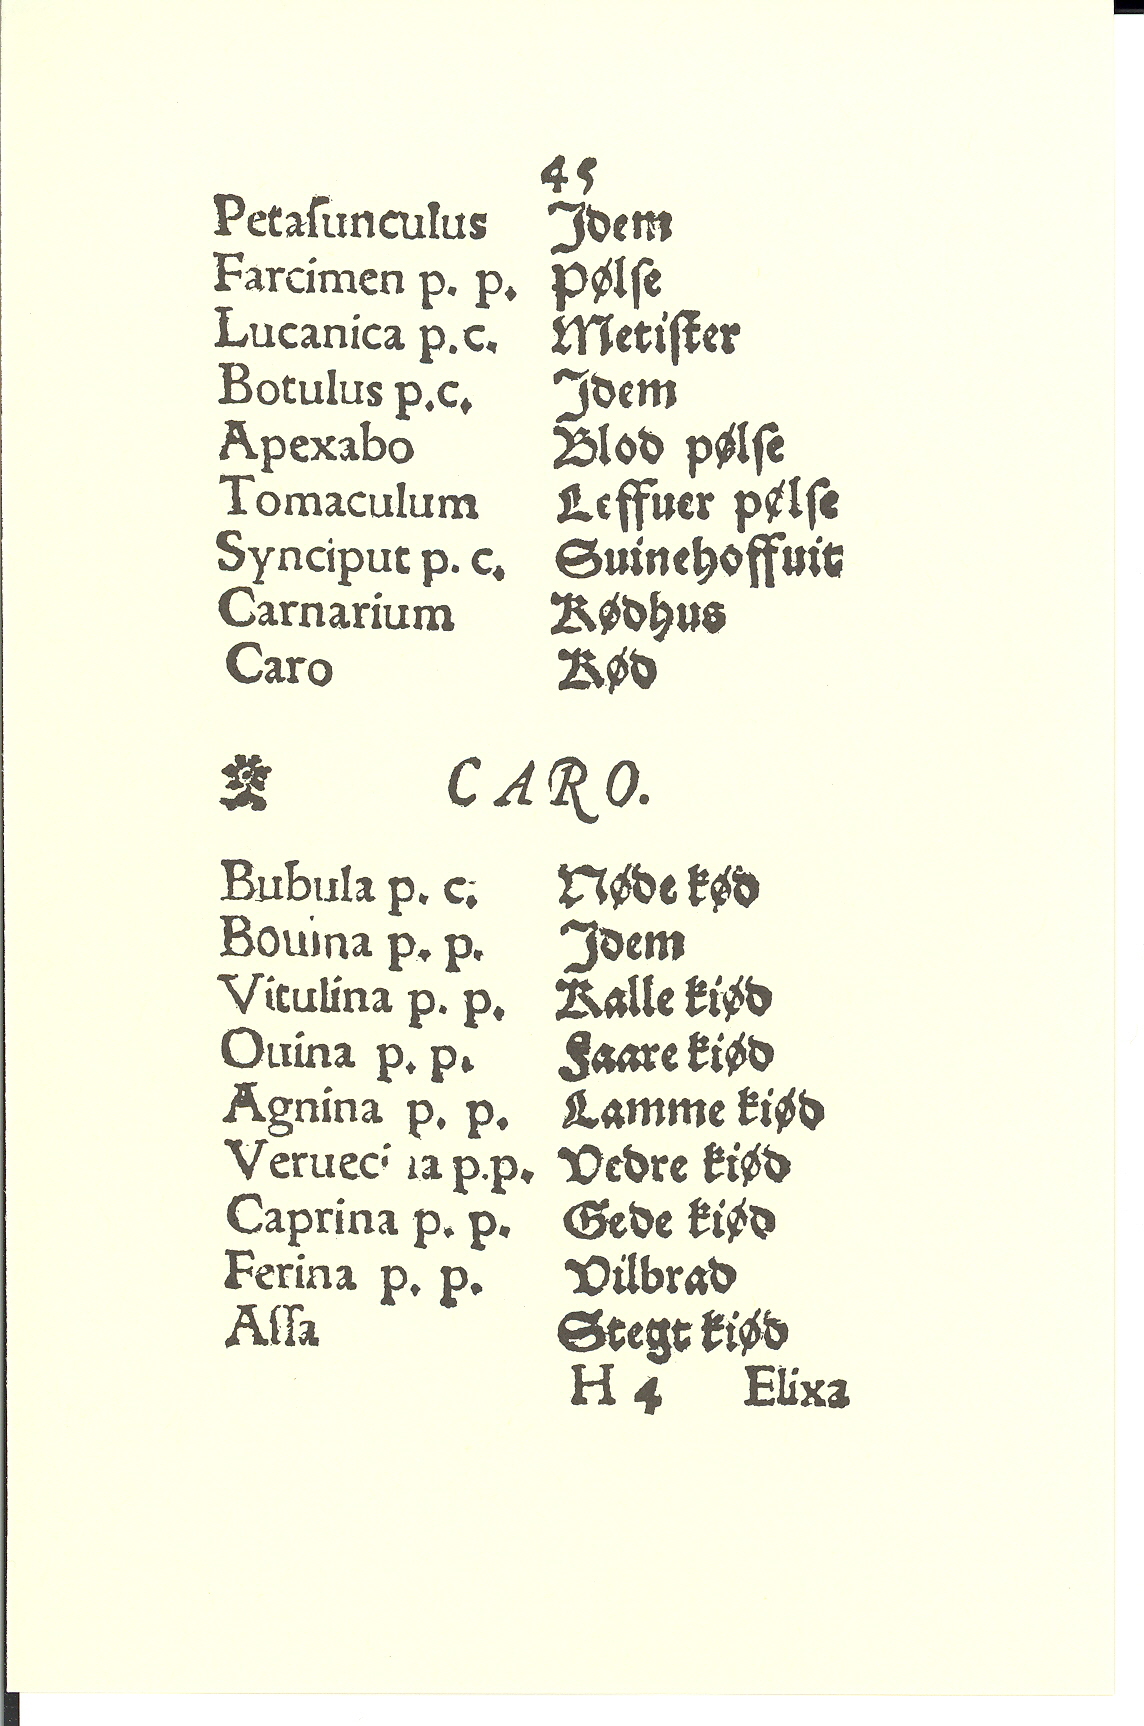 45
Petaſunculus Idem
Farcimen p. p. pølſe
Lucanica p.c. Metiſter
Botulus p.c. Idem
Apexabo Blod pølſe
Tomaculum Leffuer pølſe
Synciput p. c. Suinehoffuit
Carnarium Kødhus
Caro Kød
CARO.
Bubula p. c. Nøde kød
Bouina p. p. Idem
Vitulina p. p. Kalle kiød
Ouina p. p. Faare kiød
Agnina p. p. Lamme kiød
p.p. Vedre kiød
Caprina p. p. Gede kiød
Ferina p. p. Vilbrad
Aſſa Stegt kiød
H 4 Elixa